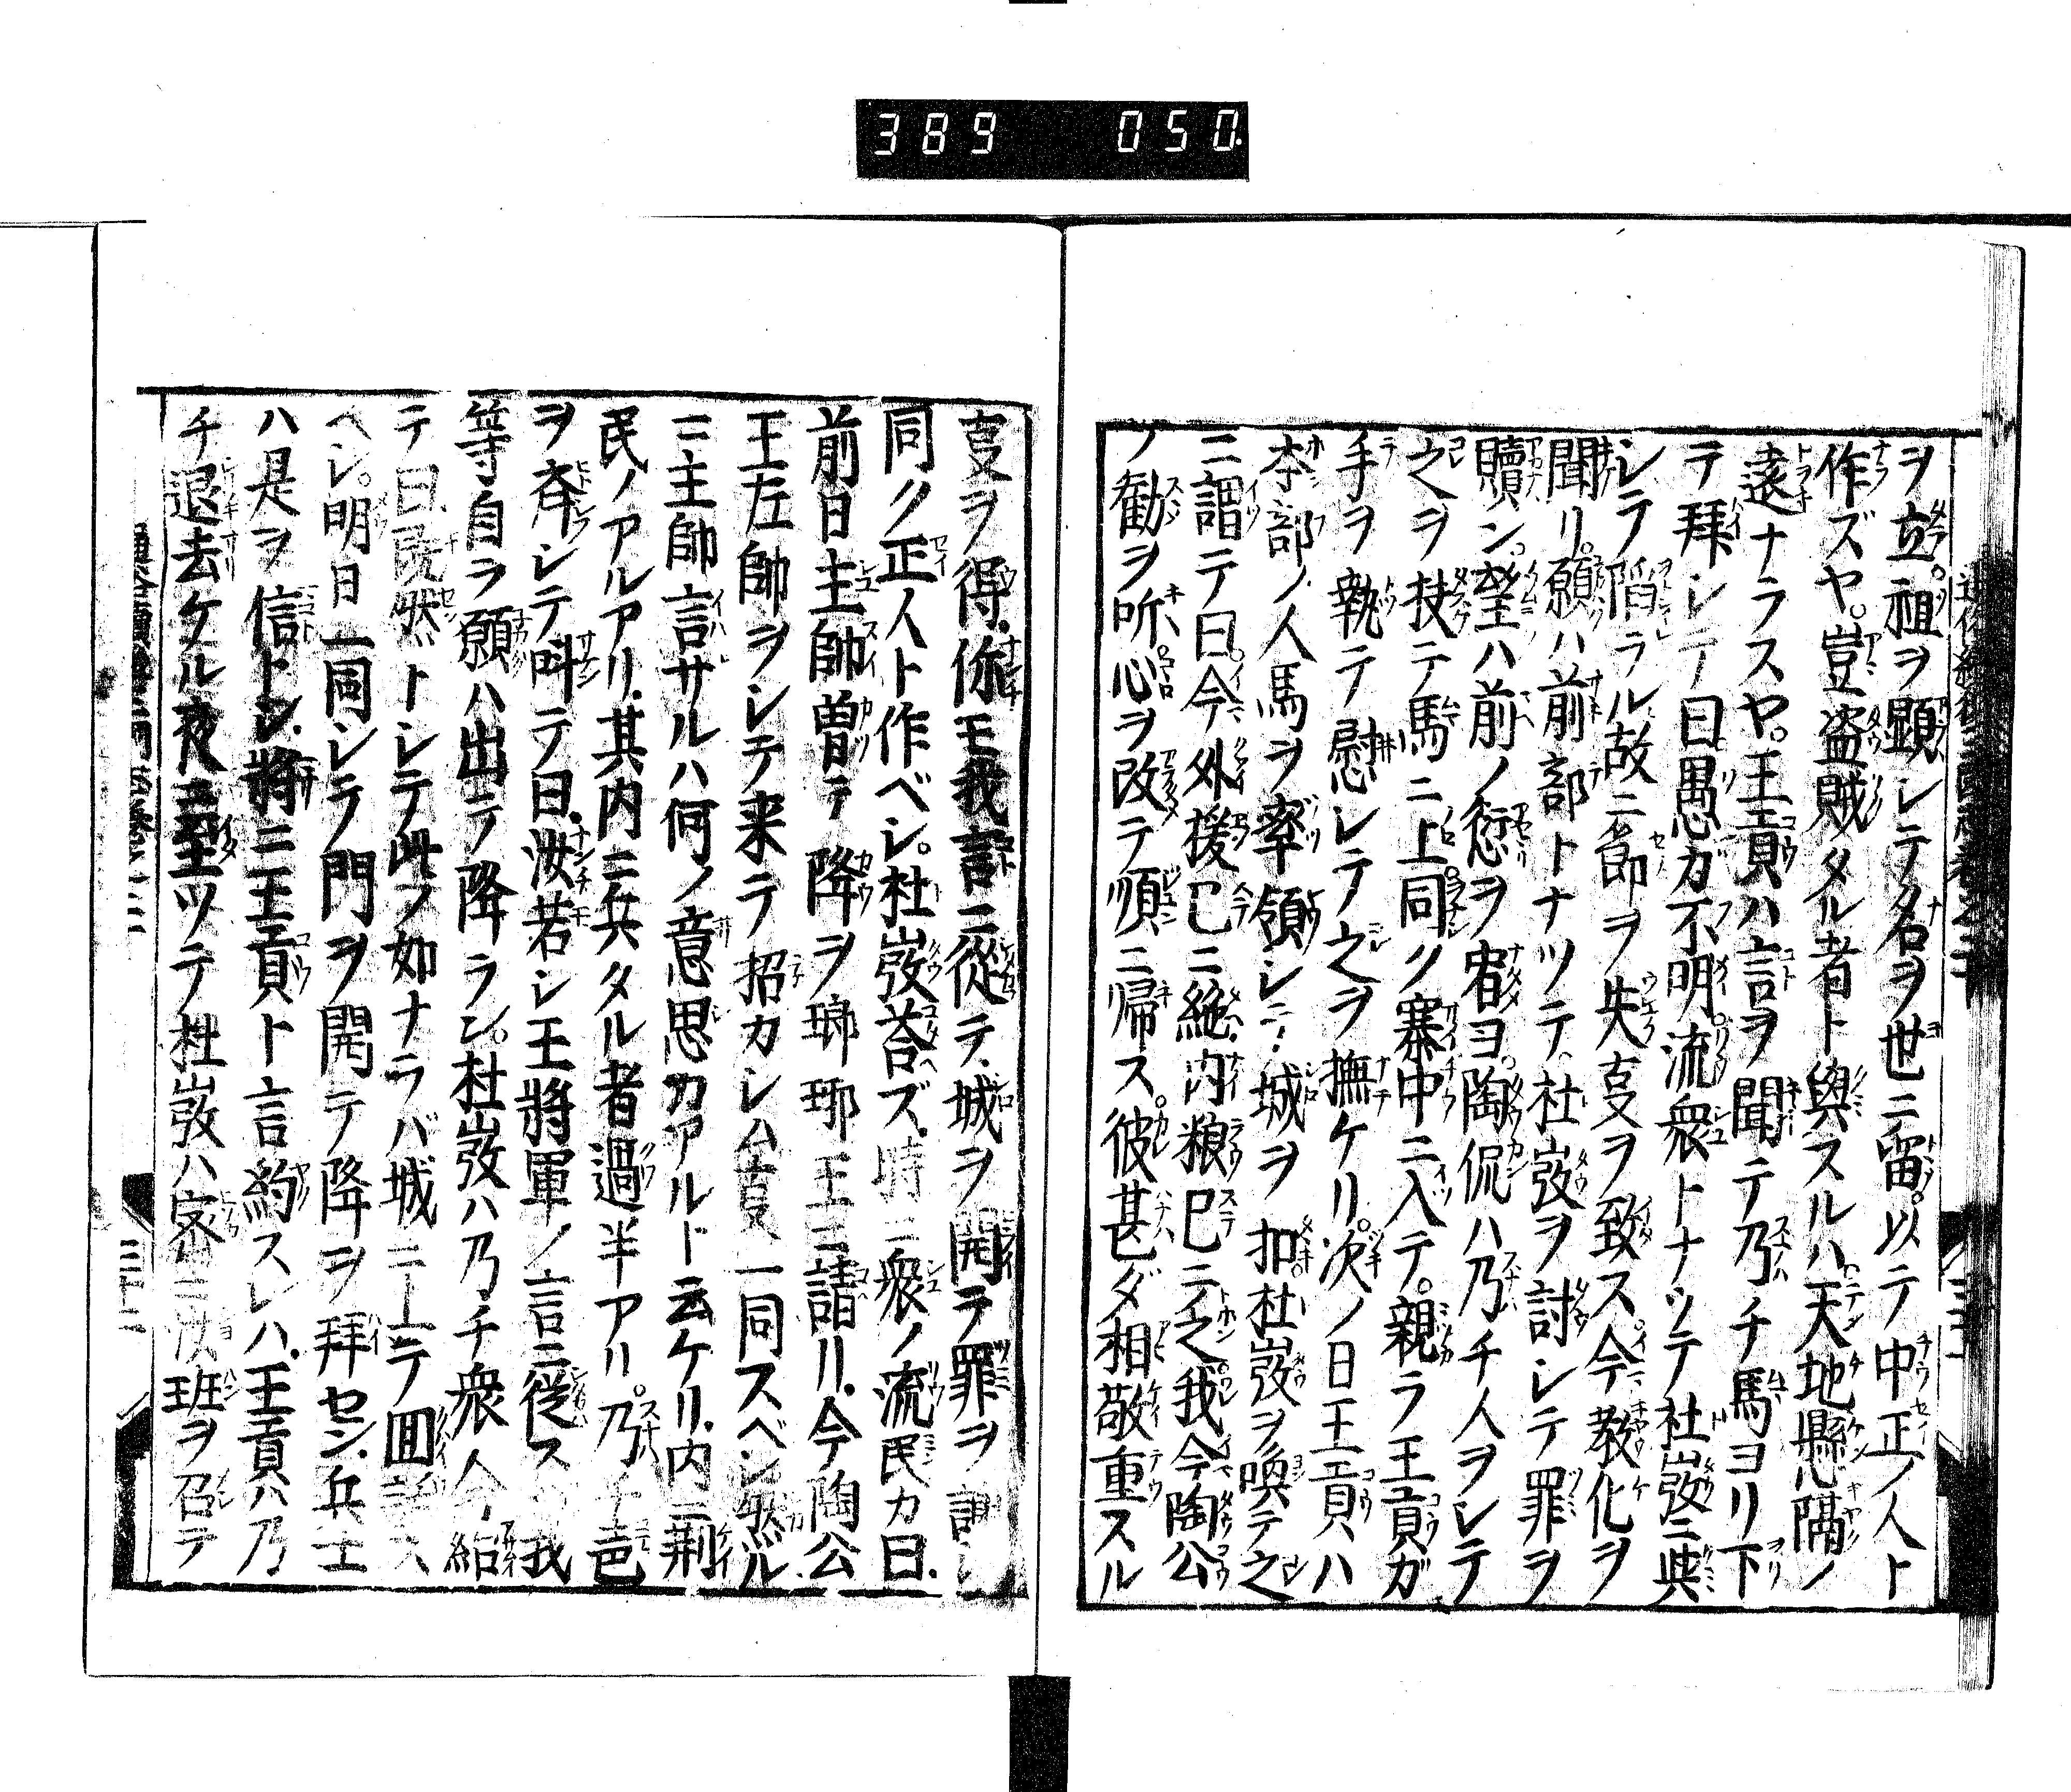 389 050
ヲ立。祖ヲ顕シテ名ヲ世ニ留。以テ中正ノ人ト
作ズヤ。豈盗賊タル者ト與スルハ天地懸隔ノ
遠ナラスヤ。王貢ハ言ヲ聞テ乃チ馬ヨリ下
テ拜シテ曰愚カ不明。流衆トナツテ杜弢ニ與
シテ陷ラル故ニ節ヲ失事ヲ致ス。今教化ヲ
聞リ。願ハ前部トナツテ杜弢ヲ討シテ罪ヲ
贖ン。望ハ前ノ愆ヲ宥ヨ。陶侃ハ乃チ人ヲシテ
之ヲ扶テ馬ニ上同ク寨中ニ入テ。親ラ王貢ガ
手ヲ執テ慰シテ之ヲ撫ケリ。次ノ日王貢ハ
本部ノ人馬ヲ率領シテ城ヲ扣杜弢ヲ喚テ之
ニ謂テ曰。今外援已ニ絶内粮已ニ之我今陶公
ノ勧ヲ听。心ヲ改テ順ニ帰ス。彼甚ダ相敬重スル
事ヲ得。你モ我言ニ從テ城ヲ開テ罪ヲ謝シ
同ク正人ト作ベシ。杜弢荅ズ。時ニ衆ノ流民カ曰.
前日主帥曽テ降ヲ瑯琊王ニ請リ.今陶公
王左帥ヲシテ来テ招カシム事一同スベシ然ルル
ニ主帥言サルハ何ノ意思カアルト云ケリ.内ニ荆
民ノアルアリ.其内ニ兵タル者過半アリ。乃チ邑
ヲ斉シテ呌テ曰.汝若シ王將軍ノ言ニ從ス我
等自ラ願ハ出テ降ラン。杜弢ハ乃チ衆人ヲ紿
テ曰.既然トシテ此ノ如ナラバ城ニ上テ回話ス
ヘシ。明日一同シテ門ヲ開テ降ヲ拜セン.兵士
ハ是ヲ信トシ.將ニ王貢ト言約スレハ.王貢ハ乃
チ退去ケル夜ニ至ツテ杜弢ハ密ニ汝班ヲ召テ